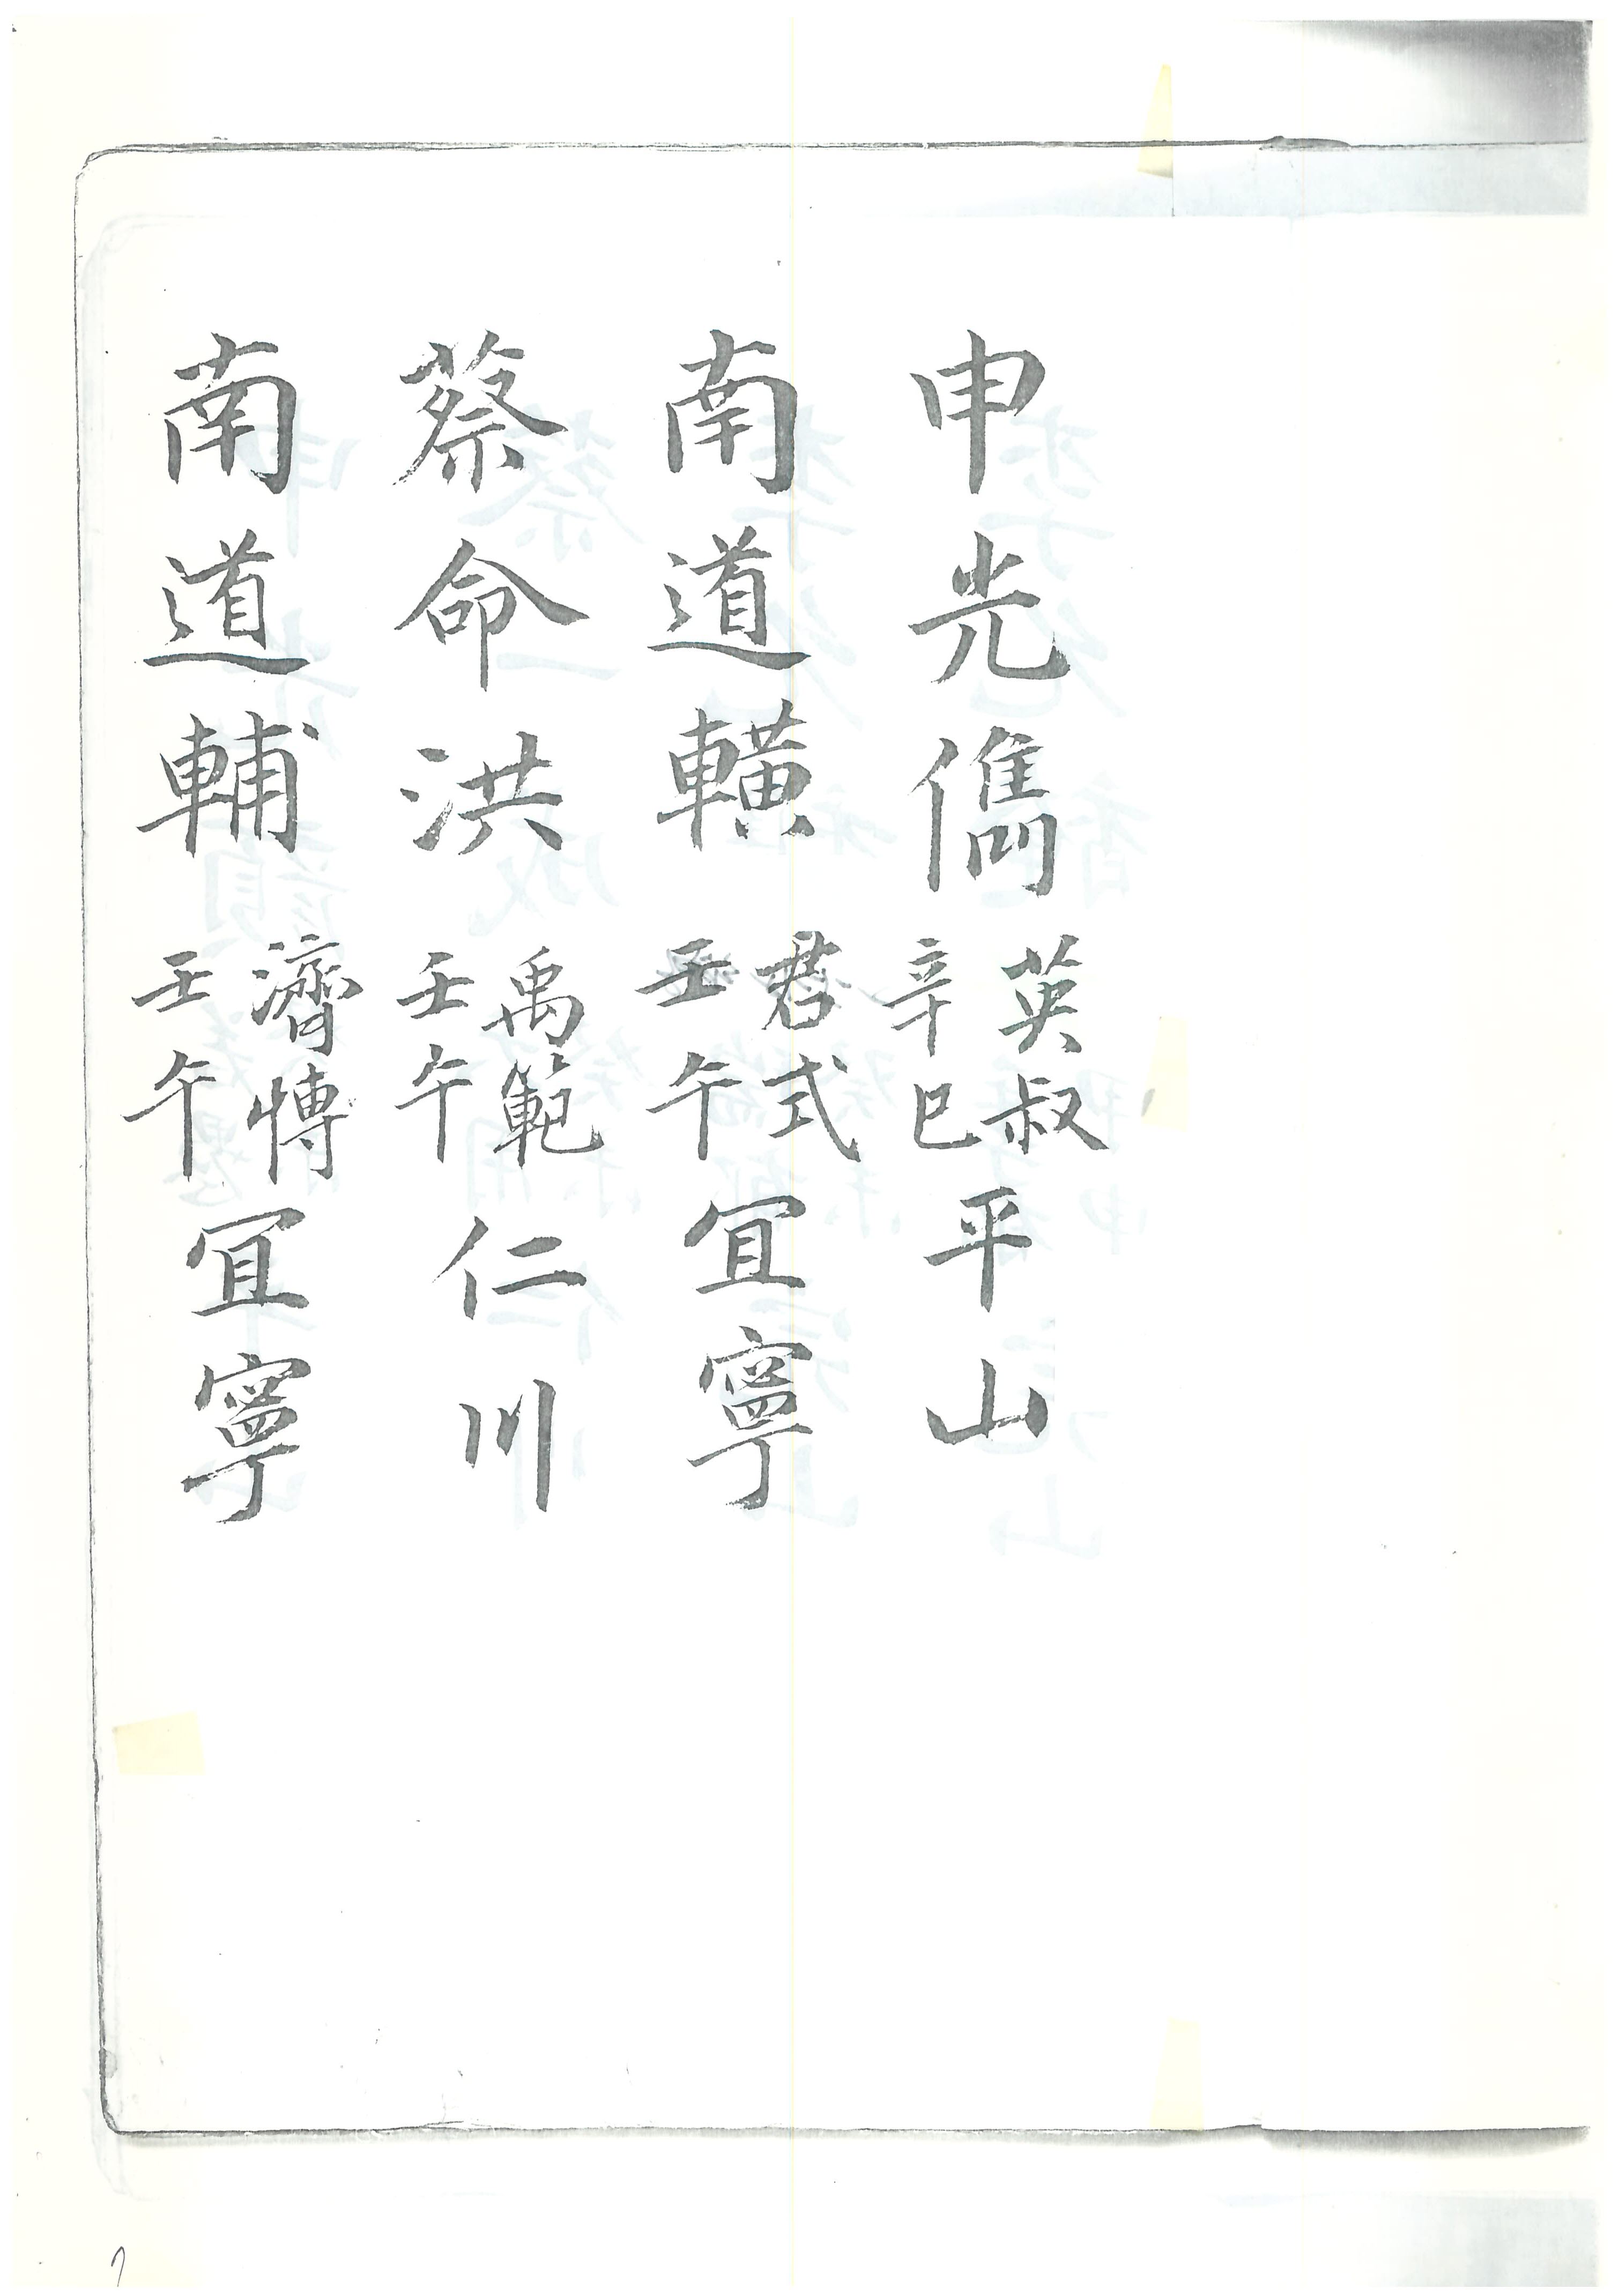 申光儁 英叔 辛巳 平山
南道轒 君式 壬午 宜寧
蔡命洪 禹範 壬午 仁川
南道輔 濟慱 壬午 宜寧